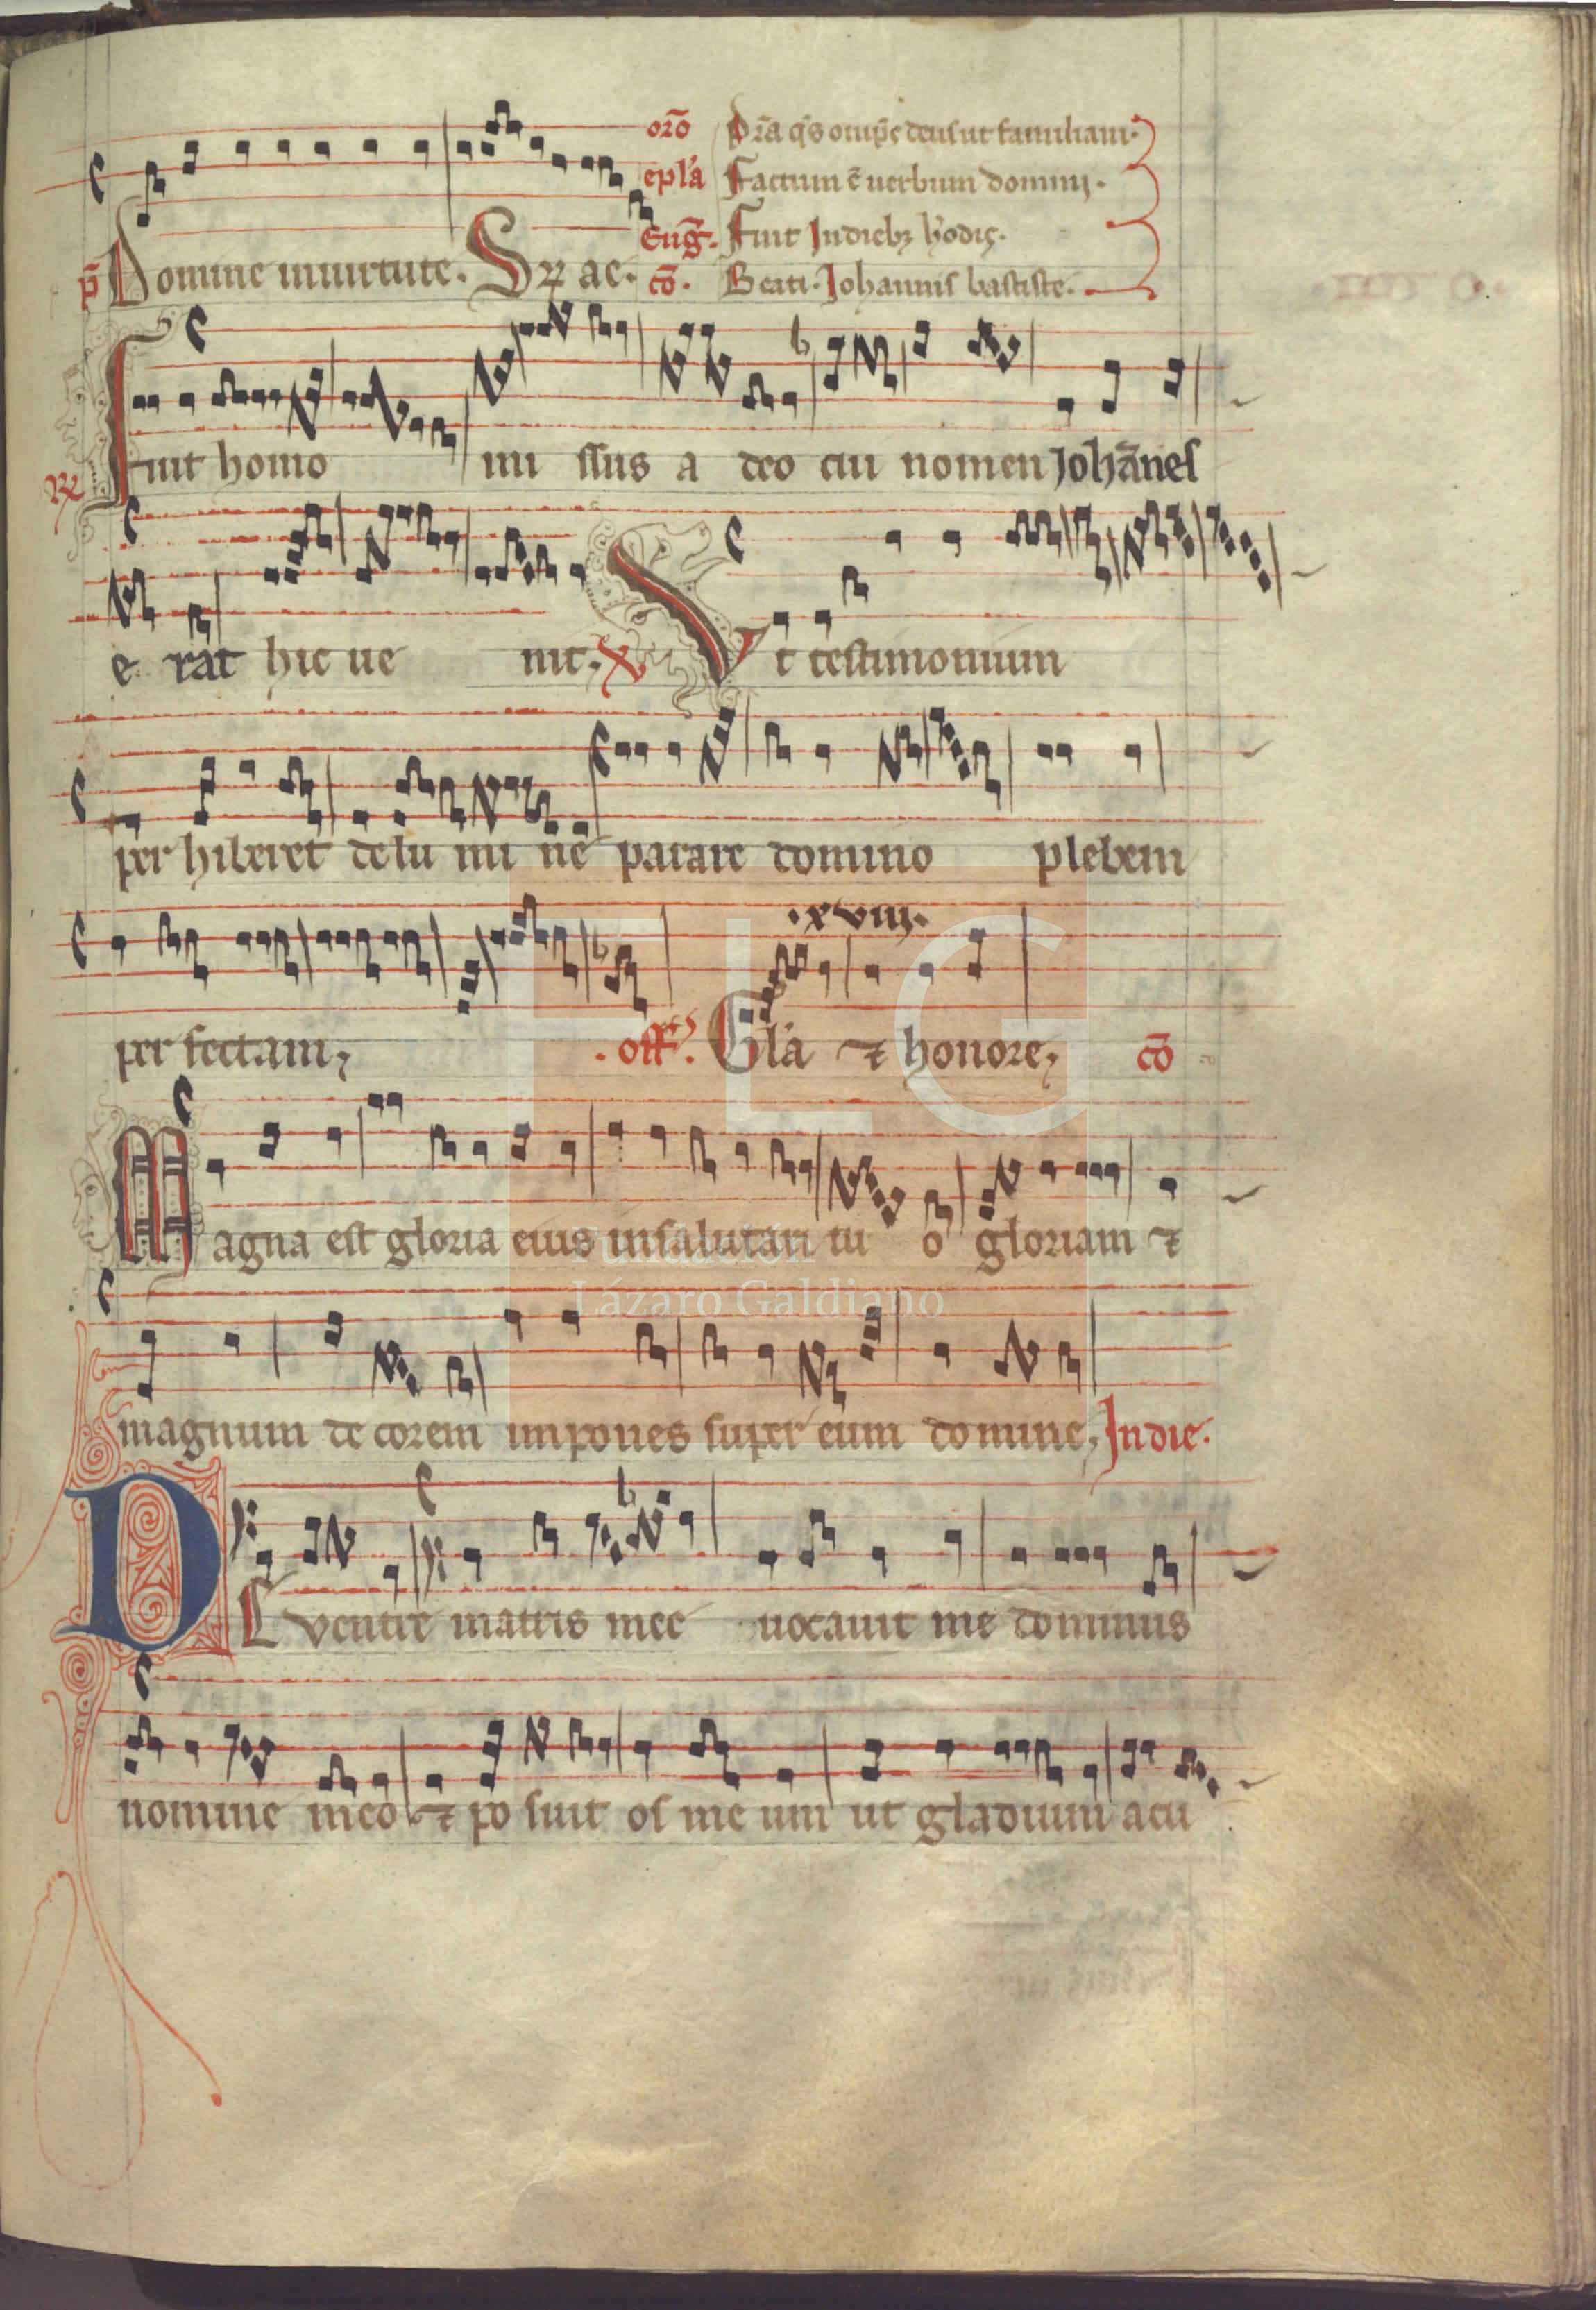 orõ p̃ra q̃s omp̃s deus ut familiam.
epl'a Factum ẽ uerbum domini.
Eug̃. Fuit Indieb; h'odis.
p̃ Domine inuirtute. S R ae. cõ. Beati. Johannis bastiste.
R Fuit homo mi ssus a deo cui nomen Johãnes
e rat hic ue nit. V Vt testimonium
per hiberet de lu mi ne parare domino plebem
.xviii.
per fectam, .off. Gl'a ⁊ honore, cõ
Magna est gloria eius insalutari tu o gloriam ⁊
magnum de corem impones super eum domine, Indie.
DE ventre matris mee uocauit me dominus
nomine meo ⁊ po suit os me um ut gladium acu
FLG
Fundación
Lázaro Galdiano